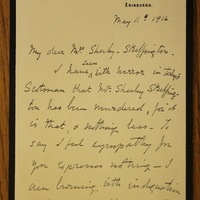 EDINBURGH.
May 11th 1916
My dear Mrs Sheehy-Skeffington -
seen
I have, with horror in today's
Scotsman that Mr Sheehy Skeffing-
ton has been murdered, for it
is that, & nothing less - To
say I feel sympathy for
you expresses nothing - I
am burning with indignation